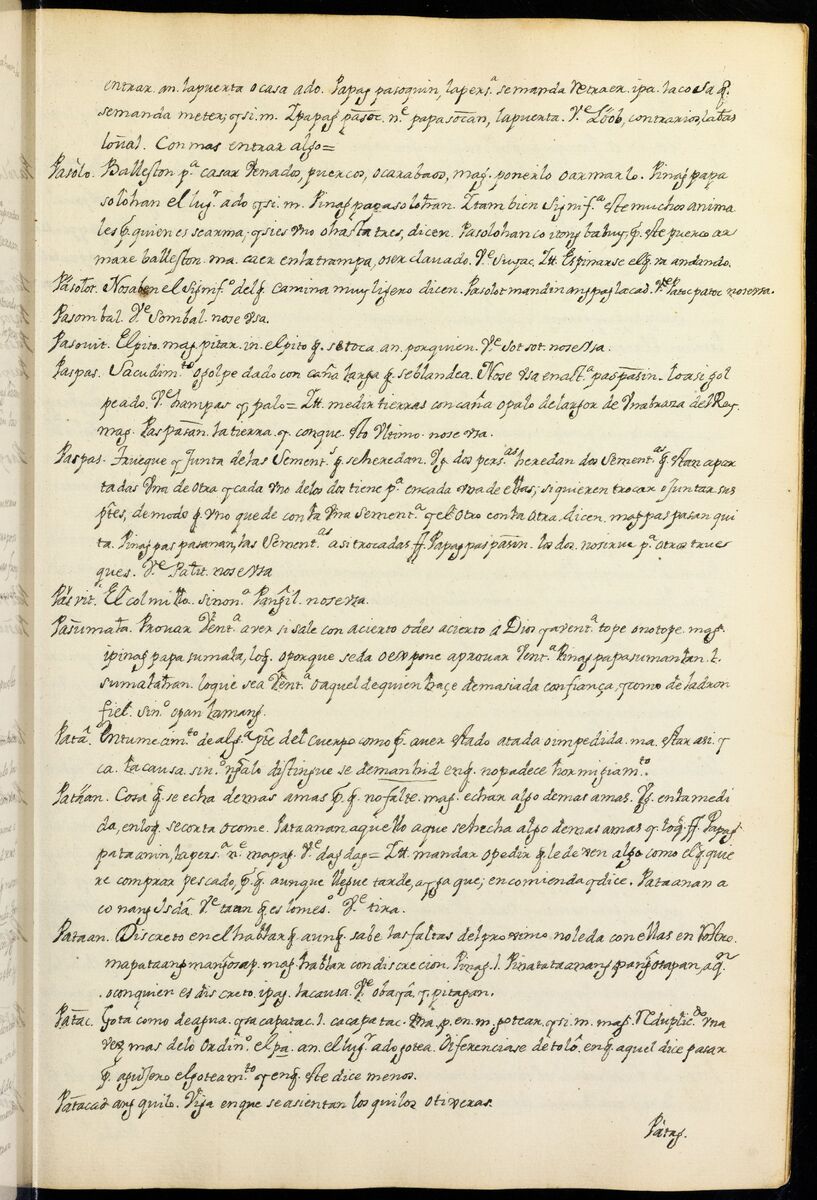 entrar. an. la puerta o casa ado. Papag pasoquin, la pers.ª se manda Vetraer. ipa. la cosa q̃.
se manda meter, q si. m. Ipapag pasoc. n.e papasocan, la puerta. V.e Loob, contrarios, latas
lou̇al. Con mas entrar algo=
Pasolo. Balleston p.ª casar Venados, puercos, o carabaos, mag. ponerlo o armarlo. Pinag papa
solohan el lug.r ado q si. m. Pinag papasolohan. Itambien Signif.ª Ate muchos anima
les p.quien es se arma, q si es vno o hasta tres, dicen. Pasolohan co itong babuy, q̃. Ate puerco ar
mare balleston. ma. caer en la trampa, o ser clavado. V.e Sugac. Itt. Espinarse el q̃. va andando.
Pasolot. No saben el Signif.o del q̃ camina muy ligero dicen. Pasolot mandin ang pag lacad. V.e Patoc patoc no se vsa.
Pasombal. V.e Sombal. no se vsa.
Pasouit. El pito. mag pitar. in. el pito q̃. se toca. an. por quien. V.e Sot sot. no se vsa.
Paspas. Sacudim.to o golpe dado con caña larga q̃ se blandea. No se vsa en act.ª paspasin. lo asi gol
peado. V.e hampas q palo= Itt. medir tierras con caña o palo del largor de Vna braza del Rey.
mag. Paspasan. la tierra. q. con que. Ato Vltimo. no se vsa.
Paspas. Trueque q Junta de las Sement.s q̃. se heredan. Vg. dos pers.as heredan dos Sement.as q̃. Atan apar
tadas Vna de otra q cada vno de los dos tiene p.e en cada vna de ellas; si quieren trocar o Juntar sus
p.tes, de modo q̃ Vno quede con la Vna Sement.ª q el Otro con la Otra. dicen. mag paspasan qui
ta. Pinag paspasanan, las Sement.as asi trocadas ff. Papag paspasin. los dos. no sirue p.ª otros true
ques. V.e Palit. no se vsa
Pasvit. El colmillo. sinon.ª Pangil. no se vsa.
Pasumala. Prouar Vent.ª a ver si sale con acierto o des acierto a Dios q a vent.ª tope o no tope. mag.
ipinag papa sumala, loq̃. o porque se da o expone a prouar Vent.ª Pinag papasumanlan. l.
sumalahan. lo que sea Vent.ª o aquel de quien haçe demasiada confiança, q como de ladron
fiel. sin.o opan lamang.
Pata. Entumecim.to de alg.ª p.te del Cuerpo como q̃. aver Atado atada o impedida. ma. Atar asi. q
ca. la causa. sin.o ngalo distingue se de manhid en q̃. no padece hormigiam.to
Pataan. Cosa q̃. se echa de mas a mas p.q̃. no falte. mag. echar algo de mas a mas. Vg. en la medi
da, en loq̃. se corta o come. Pataanan, aquello a que se hecha algo de mas a mas q. loq̃. ff. Papag
pataanin, la pers.ª n.e mapag. V.e dag dag= Itt. mandar o pedir q̃ le de ven algo como el q̃ quie
re comprar pescado, p.q̃. aunque llegue tarde, aq ga que; en comienda q dice. Pataanan a
co nang Isda. V.e taan q̃ es lo mes.o V.e tira.
Pataan. Discreto en el hablar q̃. aunq̃. sabe las faltas del proximo no le da con ellas en rostro.
mapataang mangosap. mag. hablar con discrecion. Pinag. l. Pinatataanang pangosapan, aq.n
o con quien es discreto. ipag. la causa. V.e obaya q. pitagan.
Patac. Gota como de agua. q sacapatac. l. cacapatac. Vna p. en. m. gotear. q si. m. mag. Reduplic.do Vna
vez mas de lo Ordin.o el pa. an. el lug.r ado gotea. Diferenciase de tolo. en q̃. aquel dice pasar
q̃. agujero el goteam.to q en q̃. Ate dice menos.
Patacad ang quilo. Viga en que se asientan los quilos o tixeras.
Patag.